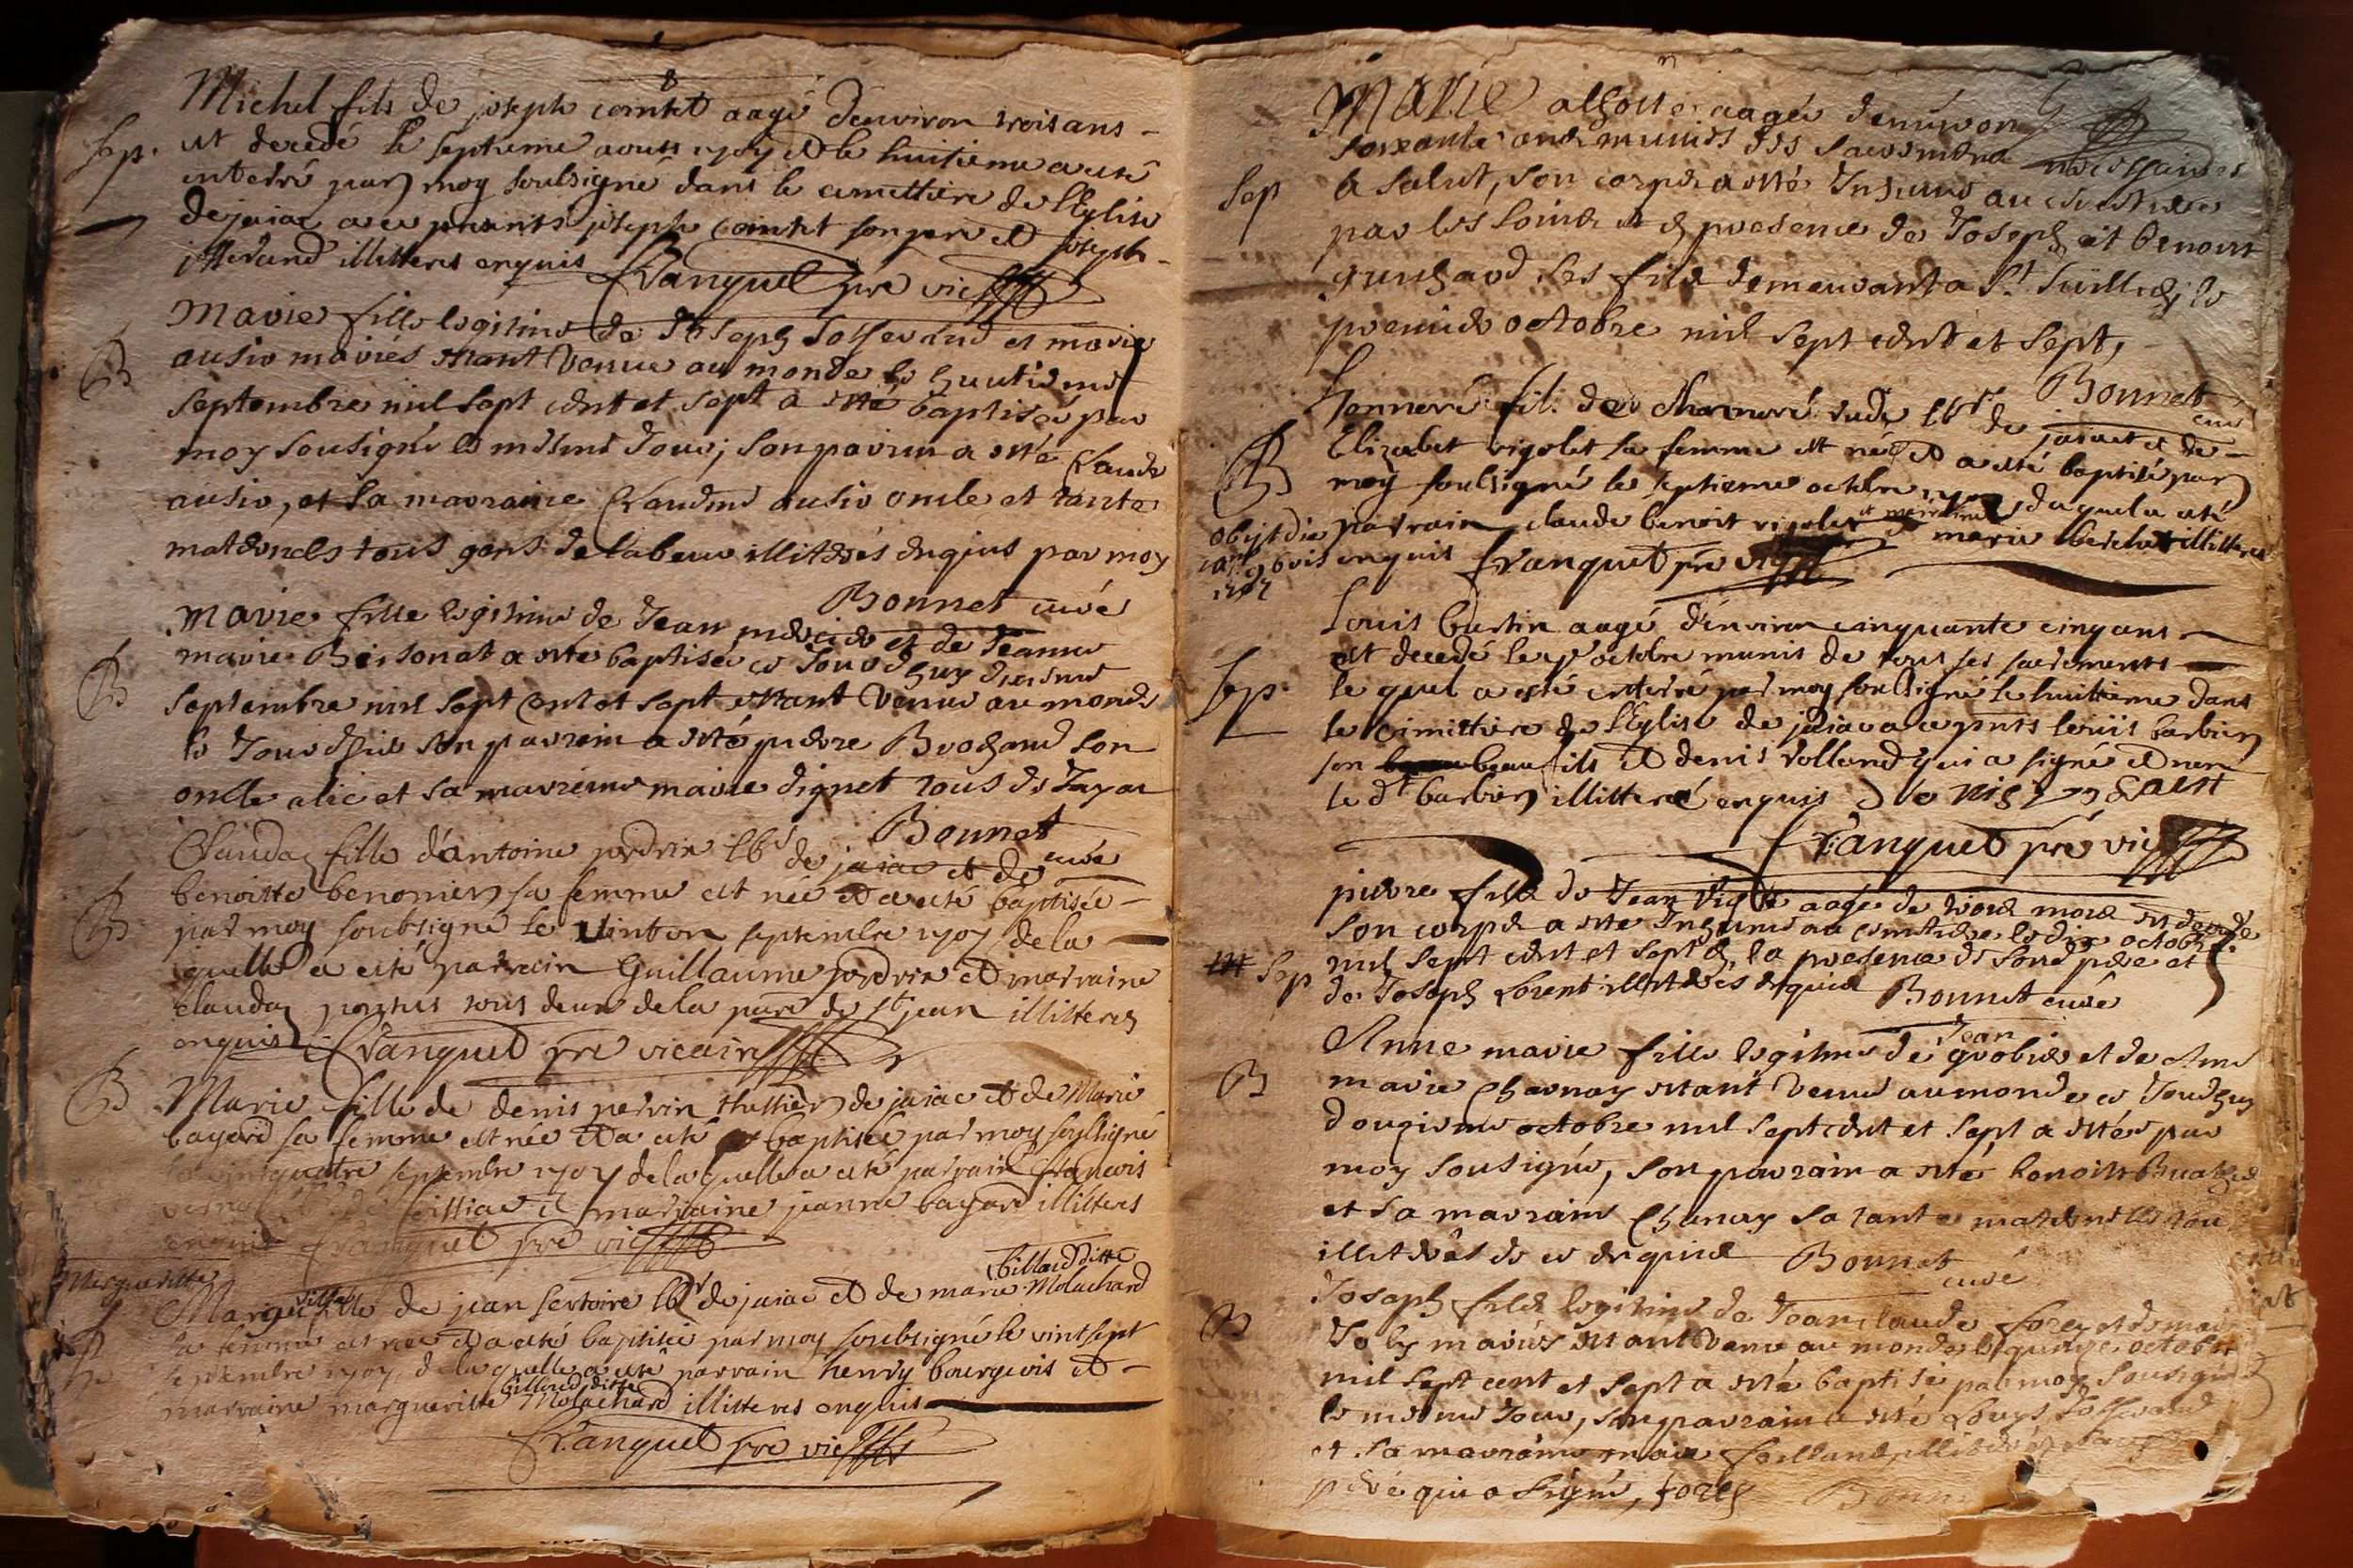 Michel fils de joseph comtet aagé d'environ trois ans
Sep. est decedé le septieme aoust 1707 et le huitieme a esté
enterré par moy soubsigné dans le cimettiere de l'Eglise
de jaiac avec presents joseph comtet son pere et joseph
illitteres enquis Franquet pre vic
Marie fille legitime de Joseph et marie
B ausir mariés estant venue au monde le huutieme
septembre mil sept cent et sept a esté baptisée par
moy sousigné le mesme Jour; son parrin a esté Claude
ausir, et sa marraine Claudine ausir oncle et tante
maternels tous gens de labeur illiterés enquis par moy
Bonnet curé
Marie fille legitime de Jean mercier et de Jeanne
B marie a esté baptisée ce Jourdhuy
septembre mil sept cent et sept estant venue au monde
le Jour d'hier son parrein a esté pierre Brochand son
oncle alié et sa marreine marie dignet tous de Jayac
Bonnet curé
Clauda fille d'antoine perdrix lbr de jaiac et de
B benoitte benonier sa femme est née et a esté baptisée
par moy soubsigné le vinton septembre 1707 de la
quelle a esté parrain Guillaume perdrix et marraine
clauda tous deux de la parre de st jean illitteres
enquis Franquet pre vicaire
B Marie fille de denis perrin de jaiac et de Marie
bayard sa femme est née et a esté baptisée par moy soussigné
le vintquatre septembre 1707 de laquelle a esté parrain francois
et marraine jeanne bayard illitteres
enquis Franquet pre vic
Margueritte billard ditte
fille de jean sertoire lbr de jaiac et de marie Molachard
sa femme est née et a esté baptisée par moy soubsigné le vint sept
septembre 1707, de la quelle a esté parrain henry bourgeois et
billard ditte
marraine margueritte Molachard illitteres enquis
Franquet pre vic
Marie aagée denviron
soixante ans munis des sacremens necessaires
Sep a salut, son corps a esté Inhumé au cimetiere
par les soins et en presence de Joseph et benoist
guichard ses fils demeurant a St le
premier octobre mil sept cent et sept,
Bonnet curé
honneré fils de lbr de jaiac et de
B Elizabet rigolet sa femme est né et a esté baptisé par
moy soulsigné le septieme octobre 1707, duquel a esté
obijt die parrain claude benoit rigolet et marraine marie illitteres
9bris enquis Franquet pre vic
1707
Louis bastin aagé d'environ cinquante cinq ans
est decedé le octobre munis de tous ses sacrements
Sep. le quel a esté enterré par moy soulsigné le huitieme dans
le cimittiere de l'Eglise de jaiac avec pnts louis barbier
son beau fils et denis volland qui a signé et non
le dt barbier illitteré enquis denis
Franquet pre vic
pierre fils de Jean aagé de trois mois est decedé
son corps a esté Inhumé au cimetiere le dix octobre
Sep mil sept cent et sept en la presence de son pere et
de Joseph Lorent illiterés enquis Bonnet curé
Jean
Anne marie fille legitime de grobier et de Anne
B marie Charnay estant venue au monde ce Jourdhuy
dougieme octobre mil sept cent et sept a esté par
moy sousigné, son parrain a esté benoist
et sa marraine Charnay sa tante maternelle tou
illiterés de ce enquis Bonnet
curé
Joseph fils legitime de Jean claude forey et de marie
B Joly mariés estant venu au monde le quinze octobre
mil sept cent et sept a esté baptisé par moy sousigné
le mesme Jour, son parrain a esté Louys
et sa marraine marie
peré qui a signé, forey Bonn